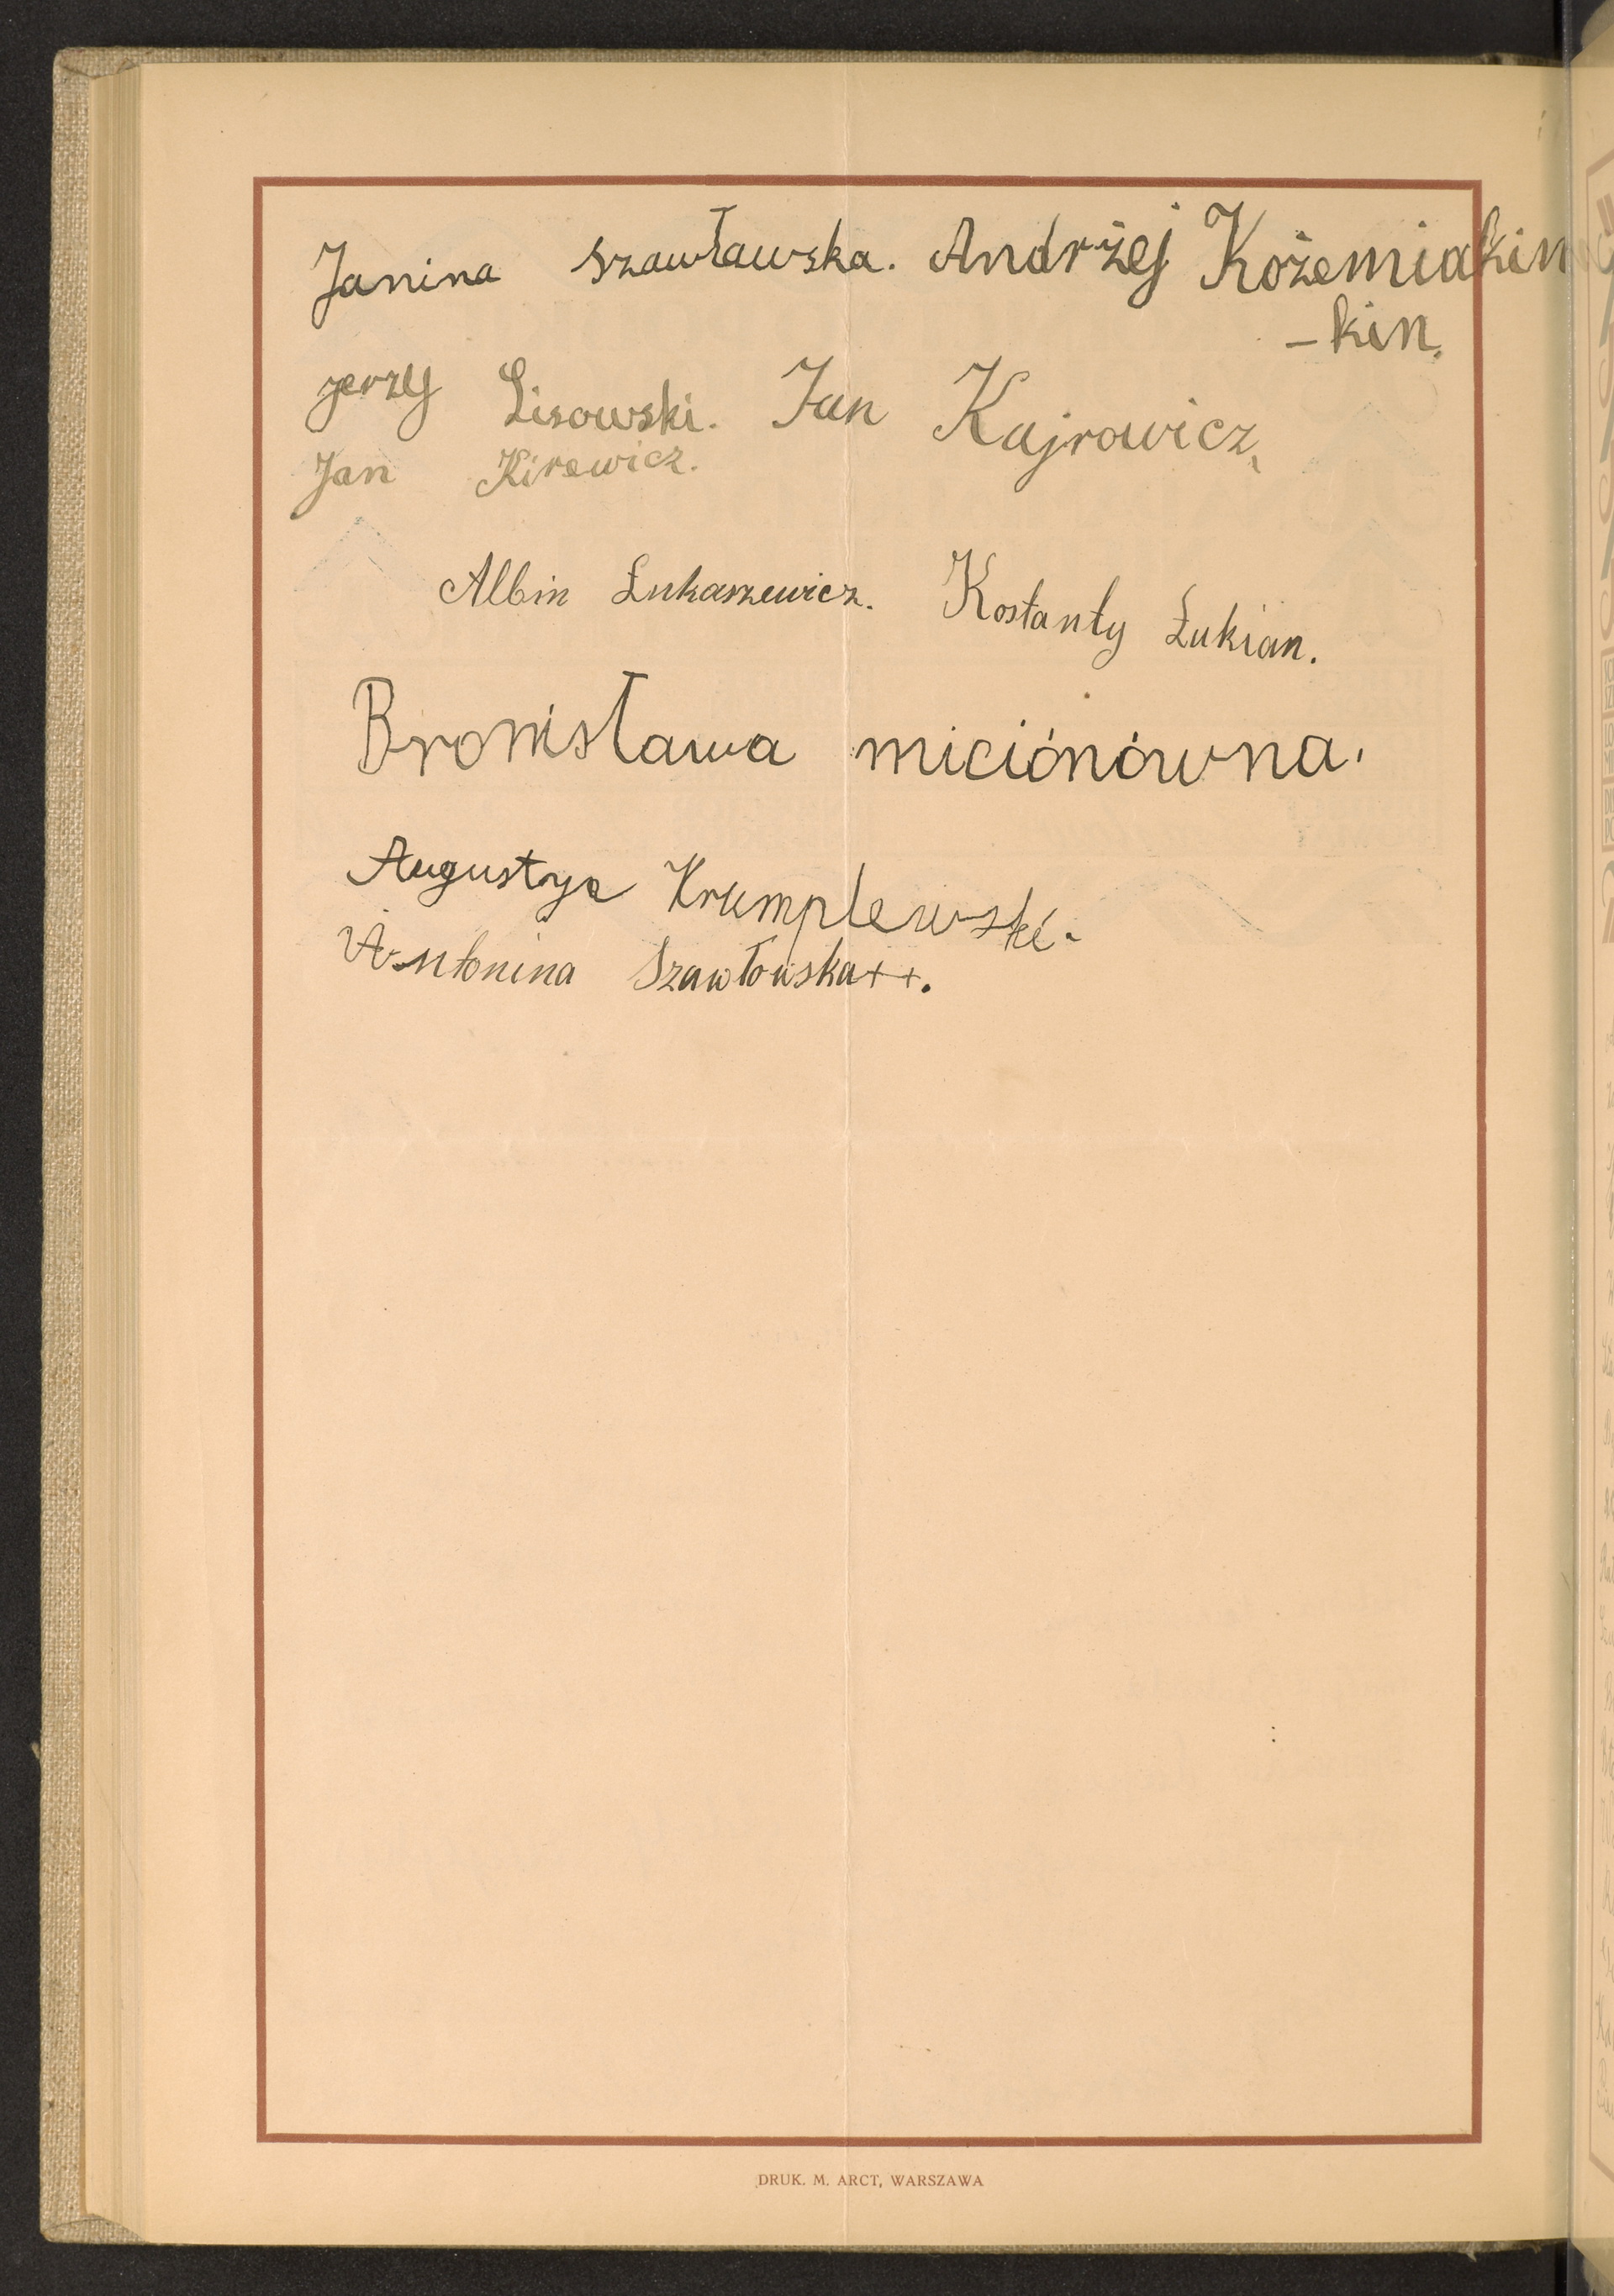 Janina Szawławska. Andrżej Kożemiakin
-kin.
jerzy Lisowski. Jan Kajrowicz.
Jan Kirewicz.
Albin Łukaszewicz. Kostanty Łukian.
Bronisława miciónówna.
Krumplewski.
Antonina Szawłowska++.
DRUK. M. ARCT, WARSZAWA